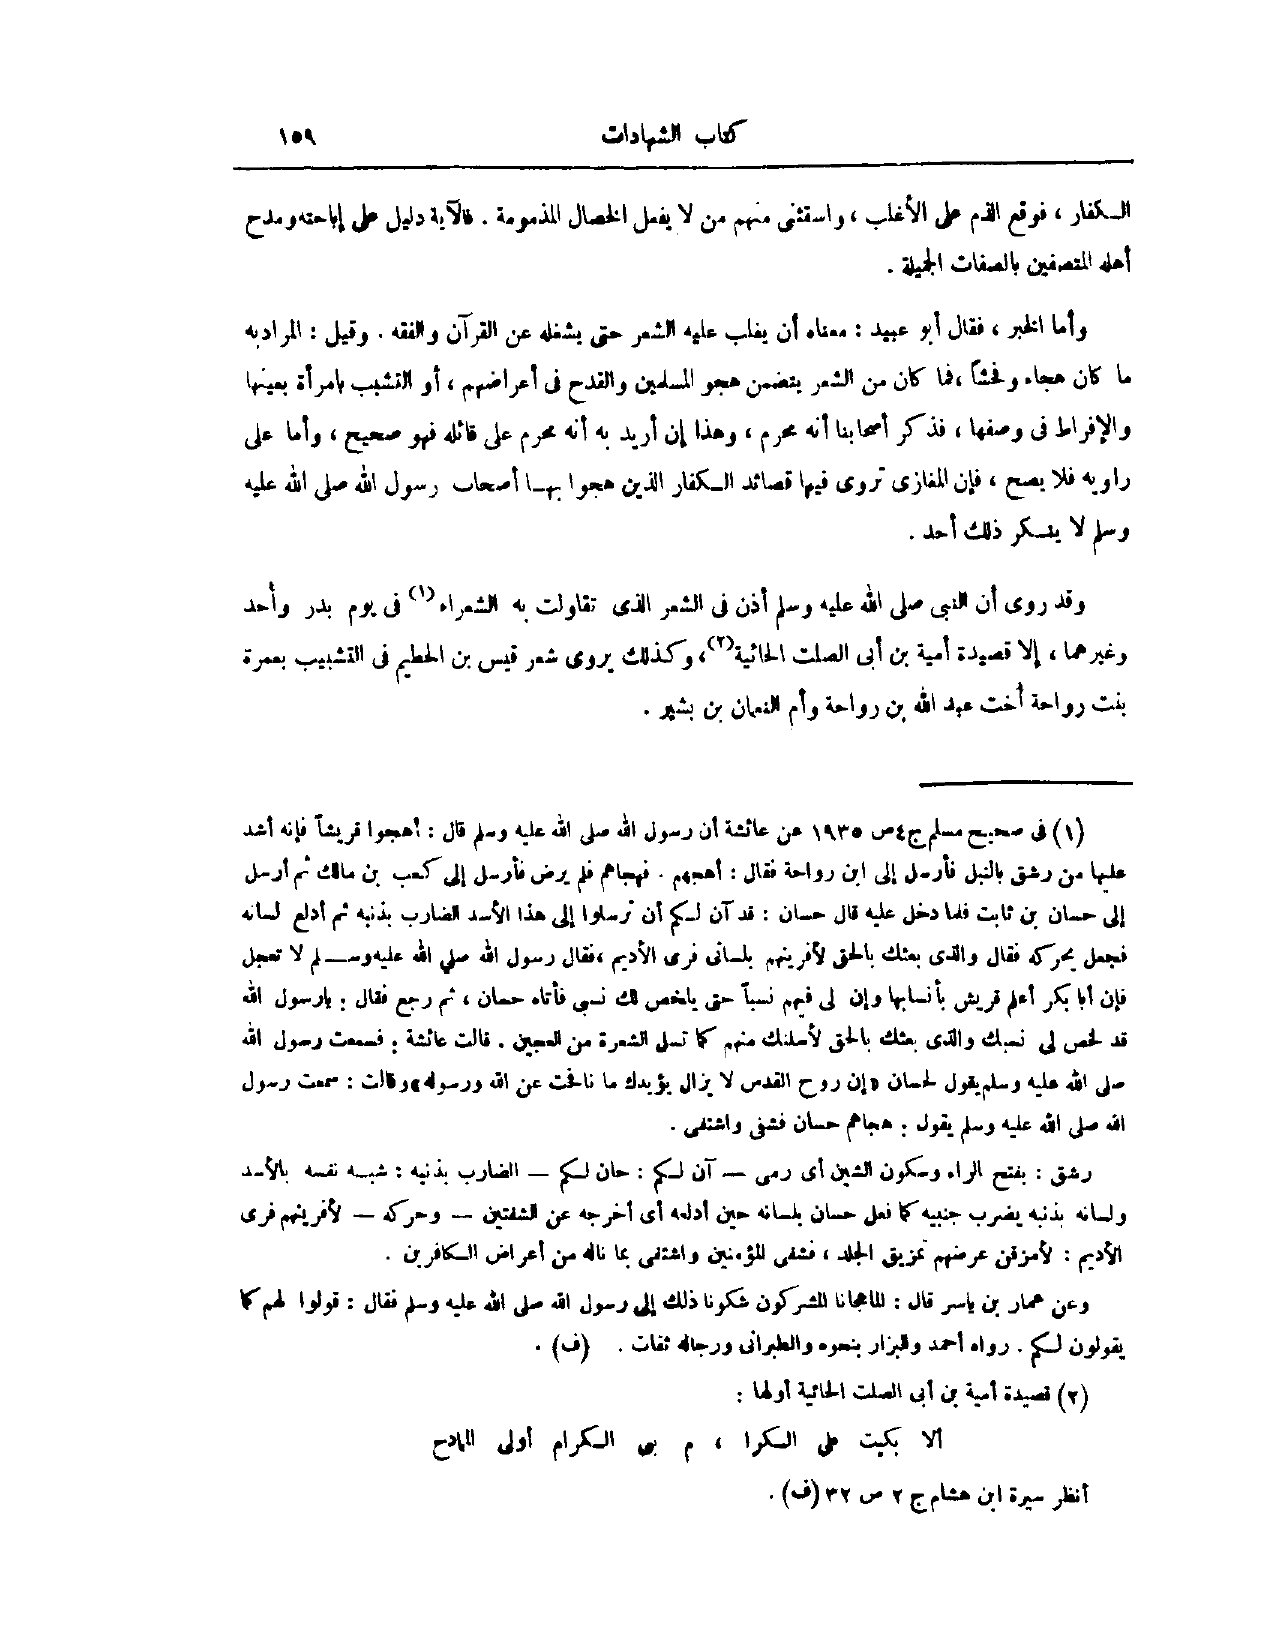 كتاب الشهادات ١٥٩
الكفار ، فوقع الذم على الأغلب ، واستثنى منهم من لا يفعل الخصال المذمومة . فالآية دليل على إباحته ومدح
أهله المتصفين بالصفات الجميلة .
وأما الخبر ، فقال أبو عبيد : معناه أن يغلب عليه الشعر حتى يشغله عن القرآن والفقه . وقيل : المراد به
ما كان هجاء وفحشاً ،فما كان من الشعر يتضمن هجو المسلمين والقدح فى أعراضهم ، أو التشبب بامرأة بعينها
والإفراط فى وصفها ، فذكر أصحابنا أنه محرم ، وهذا إن أريد به أنه محرم على قائله فهو صحيح ، وأما على
راويه فلا يصح ، فإن المغازى تروى فيها قصائد الكفار الذين هجوا بهـا أصحاب رسول الله صلى الله عليه
وسلم لا ينكر ذلك أحد .
وقد روى أن النبى صلى الله عليه وسلم أذن فى الشعر الذى تقاولت به الشعراء (١) فى يوم بدر وأحد
وغيرهما ، إلا قصيدة أمية بن أبى الصلت الحائية(٢)، وكذلك يروى شعر قيس بن الخطيم فى التشبيب بعمرة
بنت رواحة أخت عبد الله بن رواحة وأم النعمان بن بشير .
(١) فى صحيح مسلم ج٤ص ١٩٣٥ عن عائشة أن رسول الله صلى الله عليه وسلم قال : أهجوا قريشاً فإنه أشد
عليها من رشق بالنبل فأرسل إلى ابن رواحة فقال : أهجهم . فهجاهم فلم يرض فأرسل إلى كعب بن مالك ثم أرسل
إلى حسان بن ثابت فلما دخل عليه قال حسان : قد آن لكم أن ترسلوا إلى هذا الأسد الضارب بذنبه ثم أدلع لسانه
فجعل يحركه فقال والذى بعثك بالحق لأفرينهم بلسانى فرى الأديم ،فقال رسول الله صلي الله عليه وسـلم لا تعجل
فإن أبا بكر أعلم قريش بأنسابها وإن لى فيهم نسباً حتى يلخص لك نسبى فأتاه حسان ، ثم رجع فقال : يارسول الله
قد لخص لى نسبك والذى بعثك بالحق لأسلنك منهم كما تسل الشعرة من العجين . قالت عائشة : فسمعت رسول الله
صلى الله عليه وسلم يقول لحسان «إن روح القدس لا يزال يؤيدك ما نافحت عن الله ورسوله» وقالت : سمعت رسول
الله صلى الله عليه وسلم يقول : هجاهم حسان فشفى واشتفى .
رشق : بفتح الراء وسكون الشين أى رمى — آن لكم : حان لكم — الضارب بذنبه : شبه نفسه بالأسد
ولسانه بذنبه يضرب جنبيه كما فعل حسان بلسانه حين أدلعه أى أخرجه عن الشفتين — وحركه — لأفرينهم فرى
الأديم : لأمزقن عرضهم تمزيق الجلد ، فشفى المؤمنين واشتفى بما ناله من أعراض الكافرين .
وعن عمار بن ياسر قال : لما هجانا المشركون شكونا ذلك إلى رسول الله صلى الله عليه وسلم فقال : قولوا لهم كما
يقولون لكم . رواه أحمد والبزار بنحوه والطبرانى ورجاله ثقات . (ف) .
(٢) قصيدة أمية بن أبى الصلت الحائية أولها :
ألا بكيت على الكرا ، م بنى الكرام أولى الممادح
أنظر سيرة ابن هشام ج ٢ ص ٣٢ (ف) .